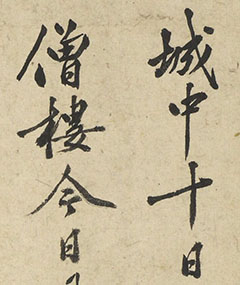 城中十日
僧樓今日